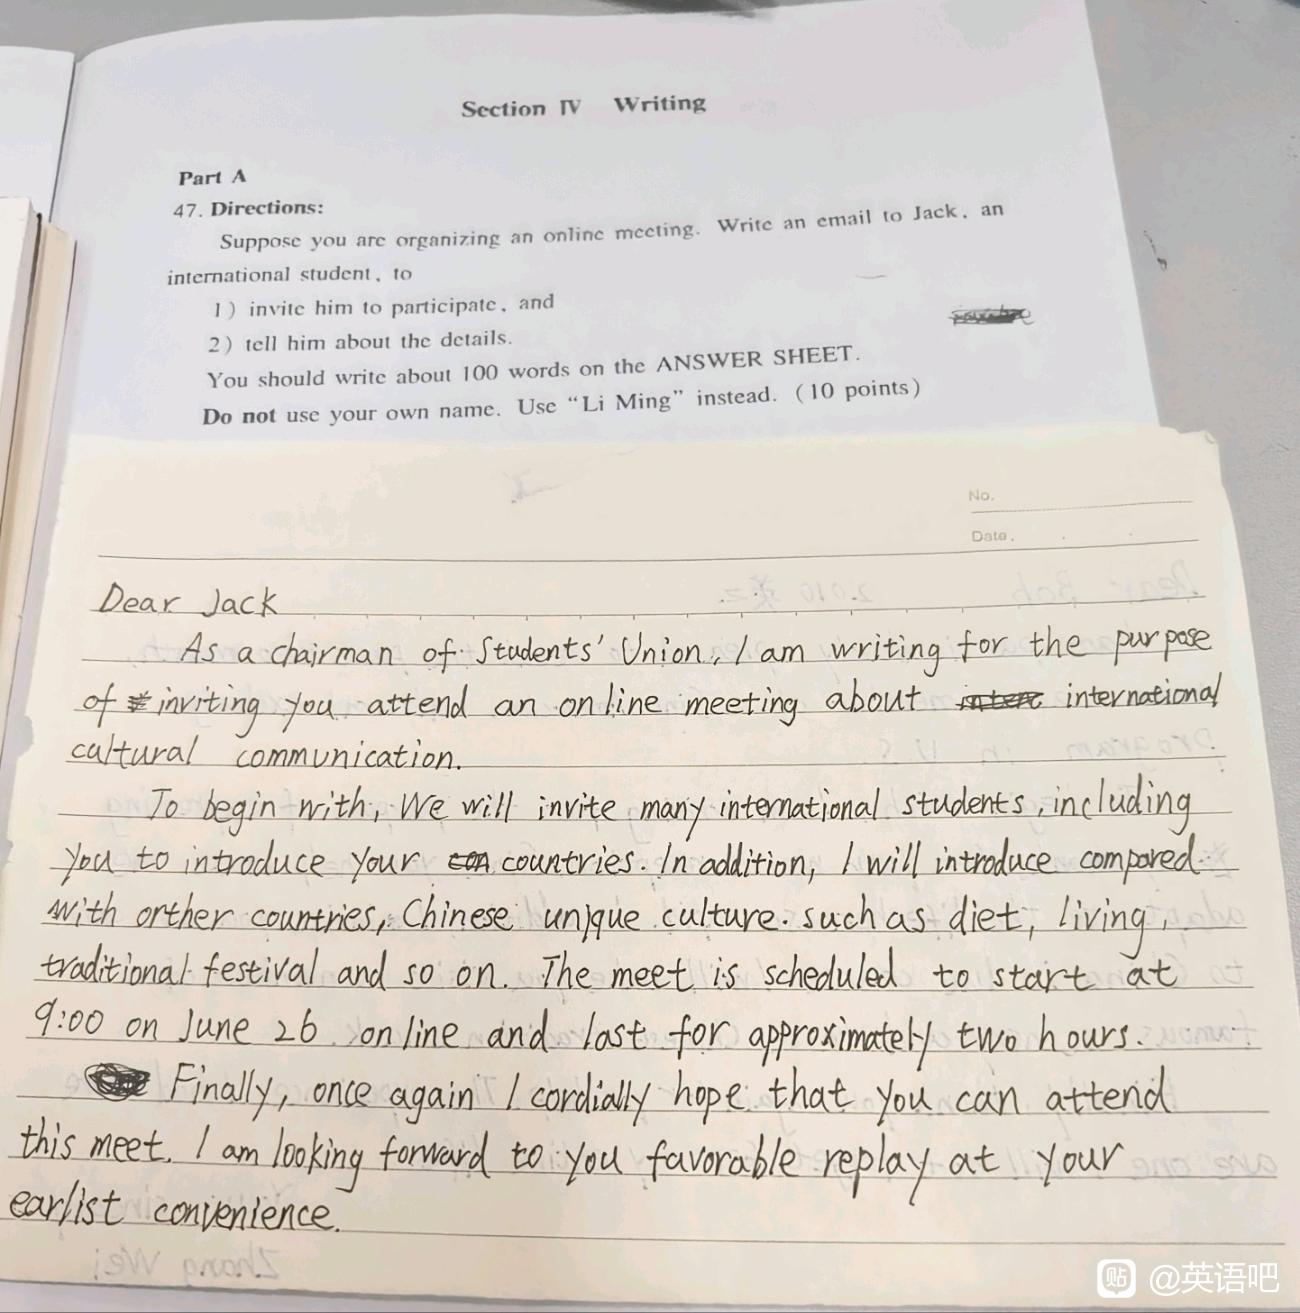 Section IV Writing
Part A
47. Directions:
Suppose you are organizing an online meeting. Write an email to Jack, an
international student, to
1) invite him to participate, and
2) tell him about the details.
You should write about 100 words on the ANSWER SHEET.
Do not use your own name. Use "Li Ming" instead. (10 points)
No.
Date.
Dear Jack
As a chairman of Students' Union, I am writing for the purpose
of inviting you attend an online meeting about international
cultural communication.
To begin with, We will invite many international students, including
you to introduce your countries. In addition, I will introduce compored
with orther countries, Chinese unique culture. such as diet, living,
traditional festival and so on. The meet is scheduled to start at
9:00 on June 26 online and last for approximately two hours.
Finally, once again I cordially hope that you can attend
this meet. I am looking forward to you favorable replay at your
earlist convenience.
贴 @英语吧